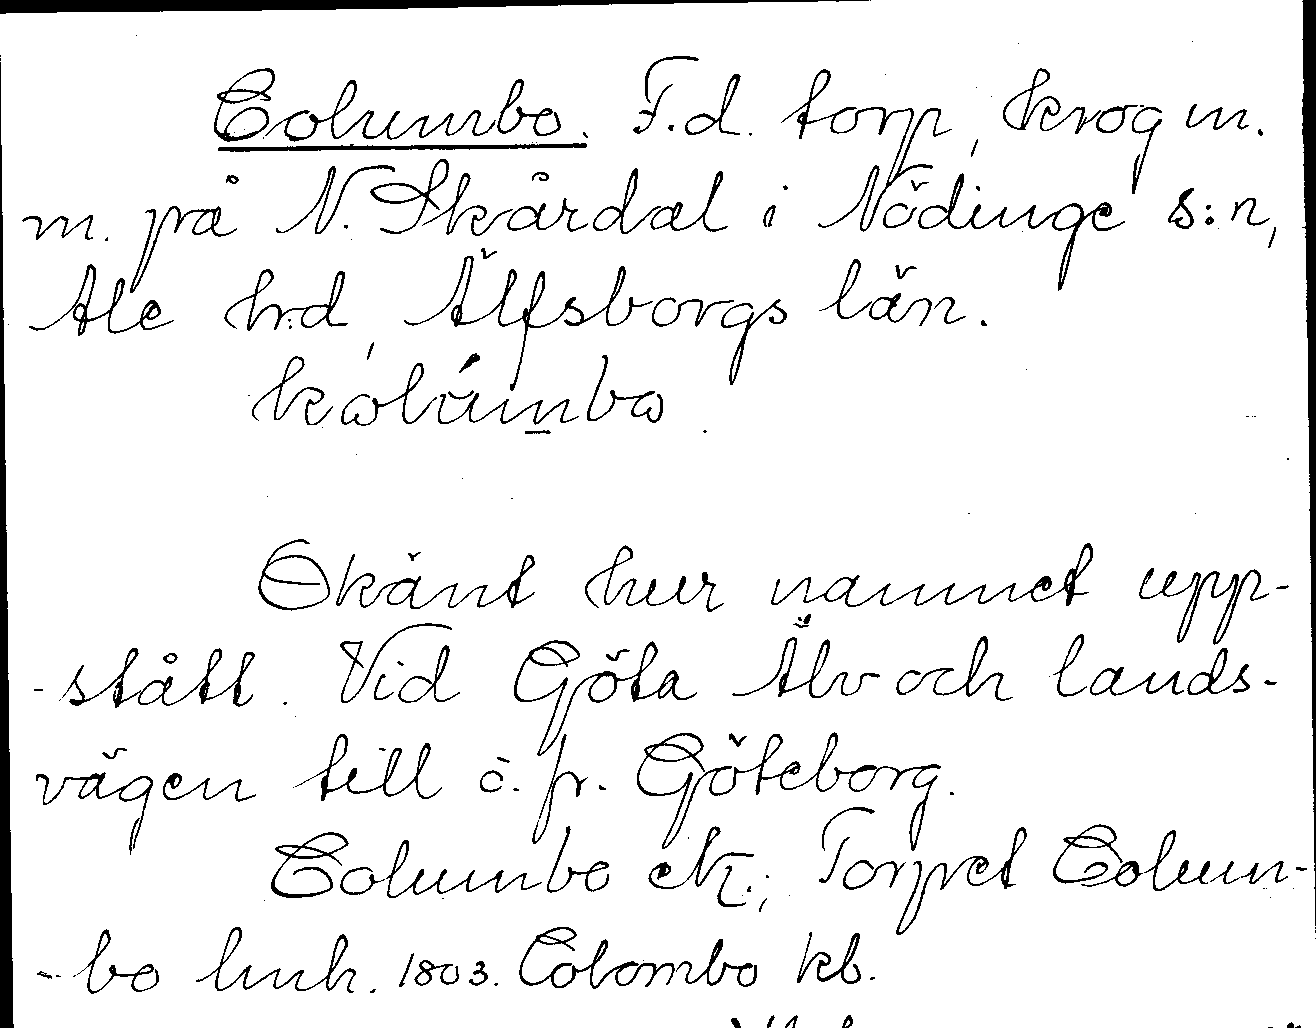 Columbo. F.d. torp, krog m.
m. på N. Skårdal i Nödinge s:n,
Ale h:d, Älfsborgs län.
kωlúmbω
Okänt hur namnet upp-
-stått. Vid Göta Älv och lands-
vägen till o. fr. Göteborg.
Columbo ek.; Torpet Colum-
-bo lmh. 1803. Colombo kb.